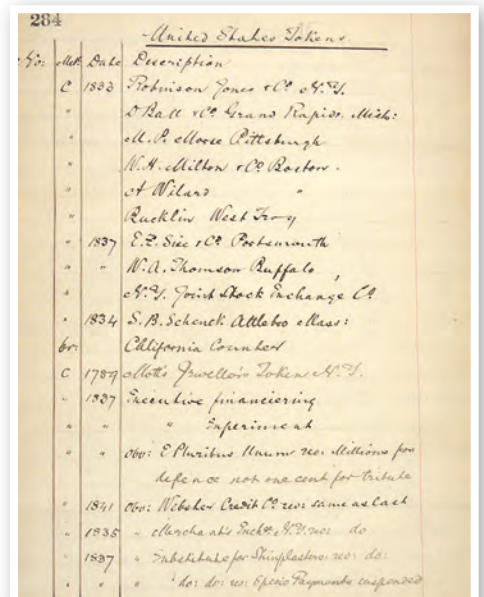 284
United States Tokens
No: Met: Date Description
C 1833 Robinson Jones & Co N.Y.
" D Ball & Co Grand Rapids. Mich:
" M. P. Morse Pittsburgh
" W. H. Milton & Co Boston.
" A Wilard "
" Bucklin West Troy
" 1837 E. F. Sise & Co Portsmouth
" " W. A. Thomson Buffalo
" N.Y. Joint Stock Exchange Co
" 1834 S. B. Schenck Attlebro Mass:
br: California Counter
C 1789 Mott's Jeweller's Token N.Y.
" 1837 Executive financiering
" " " Experiment
" " obv: E Pluribus Unum rev: Millions for
defence not one cent for tribute
" 1841 obv: Webster Credit Ct rev: same as last
" 1835 " Merchants Exche N.Y. rev: do
" 1837 " Substitute for Shinplasters: rev: do:
" " " do: do: rev: Specie Payments suspended